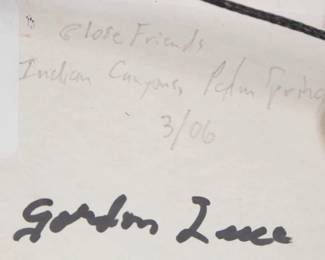 Close Friends
Indian Canyons, Palm Springs
3/06
Gordon Luce